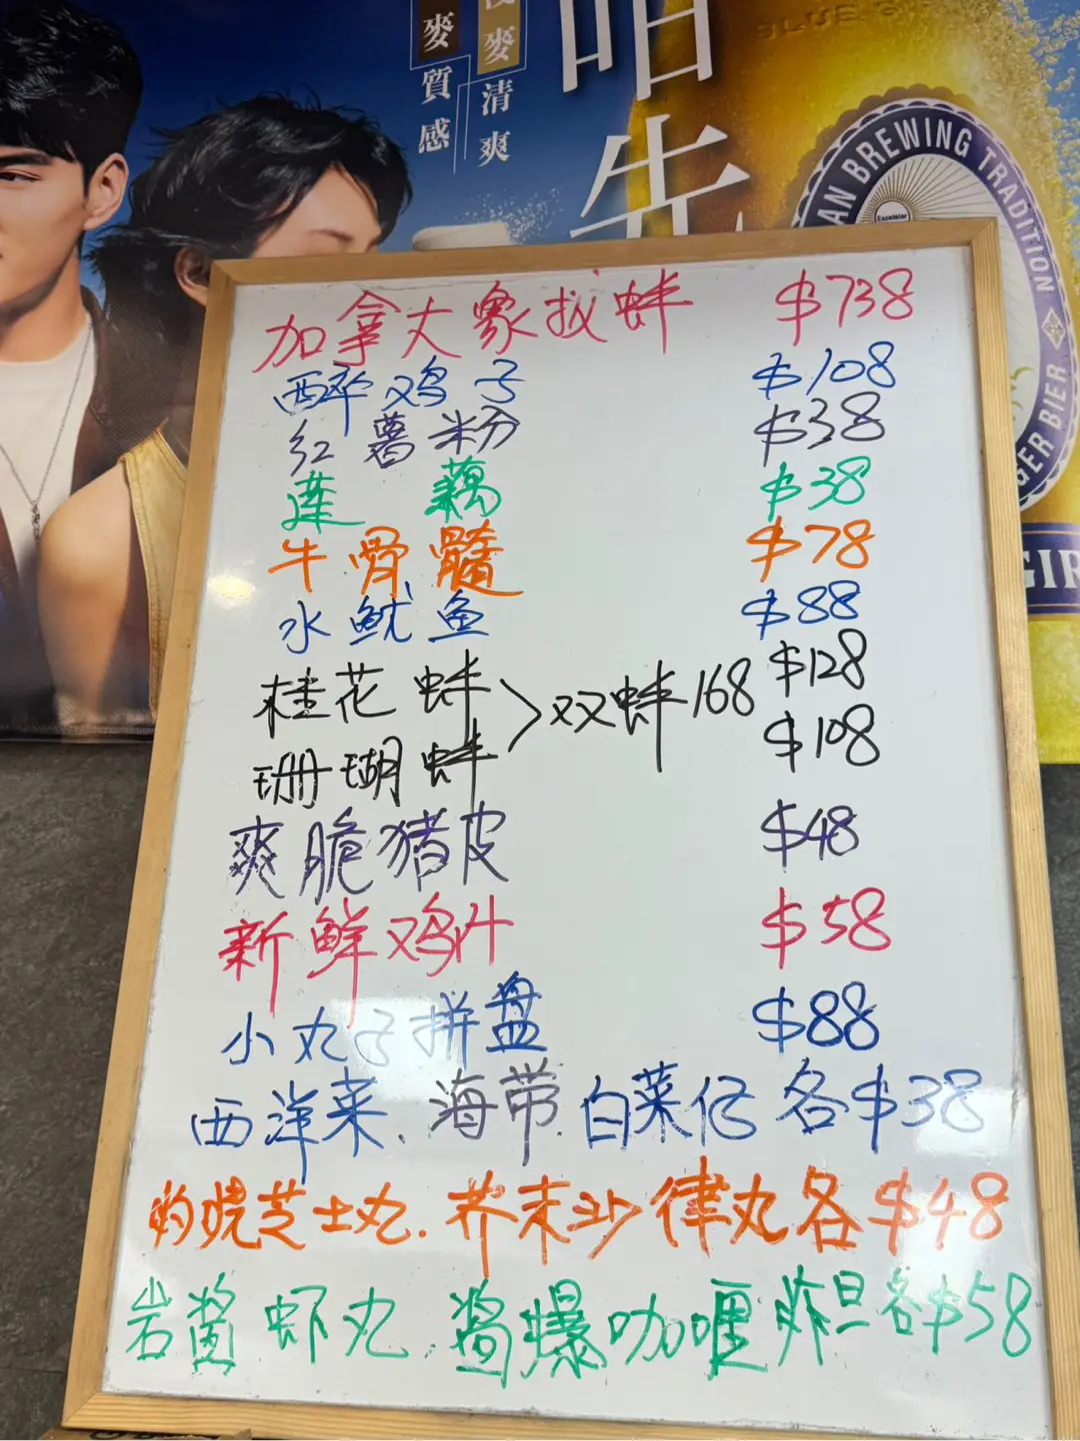 麥質感
麥清爽
咕
BLUE G
AN BREWING TRADITION
Excelsior
GER BIER
GIR
加拿大象拔蚌 $738
醉鸡子 $108
红薯粉 $38
莲藕 $38
牛骨髓 $78
水鱿鱼 $88
桂花蚌 $128
双蚌168
珊瑚蚌 $108
爽脆猪皮 $48
新鲜鸡什 $58
小丸子拼盘 $88
西洋菜、海带、白菜仔 各$38
灼烧芝士丸、芥末沙律丸各$48
岩酱虾丸、酱爆咖喱炸旦各$58